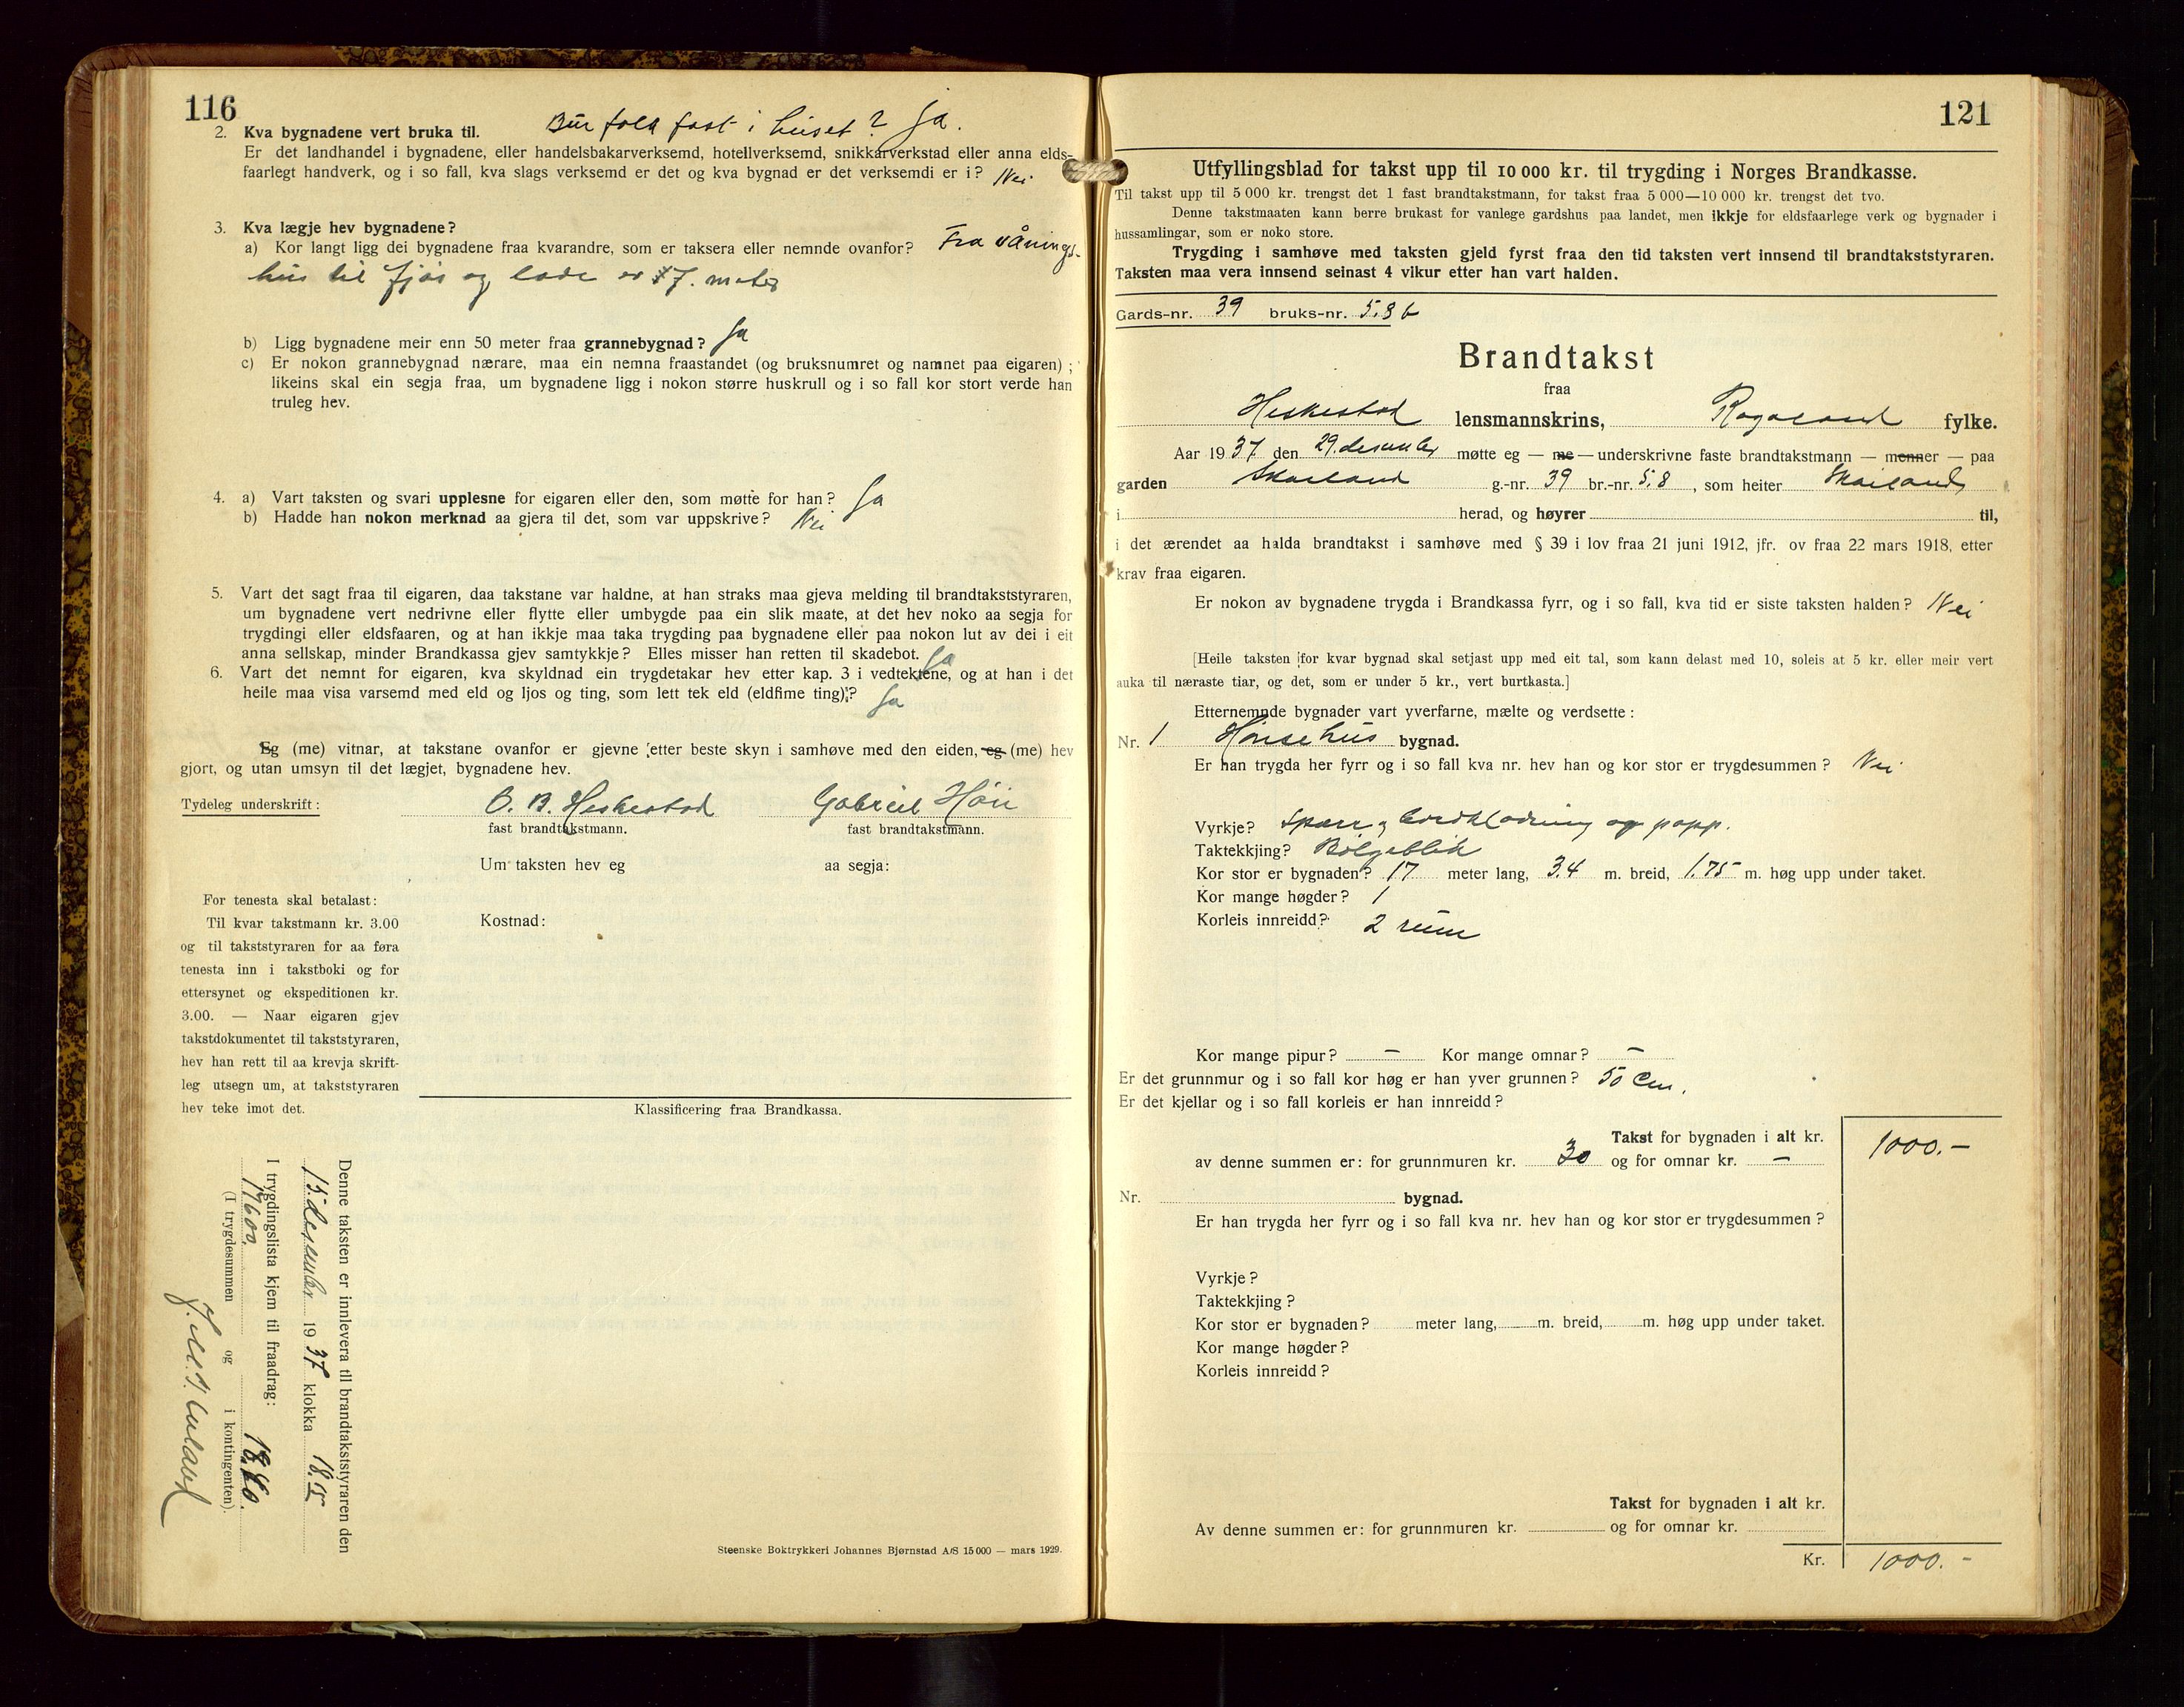 116
2. Kva bygnadene vert bruka til. Bur folk fast i huset? Ja.
Er det landhandel i bygnadene, eller handelsbakarverksemd, hotellverksemd, snikkarverkstad eller anna elds-
faarlegt handverk, og i so fall, kva slags verksemd er det og kva bygnad er det verksemdi er i? Nei
3. Kva lægje hev bygnadene?
a) Kor langt ligg dei bygnadene fraa kvarandre, som er taksera eller nemnde ovanfor? Fra vånings-
hus til fjøs og lade er 17. meter
b) Ligg bygnadene meir enn 50 meter fraa grannebygnad? Ja
c) Er nokon grannebygnad nærare, maa ein nemna fraastandet (og bruksnumret og namnet paa eigaren);
likeins skal ein segja fraa, um bygnadene ligg i nokon større huskrull og i so fall kor stort verde han
truleg hev.
4. a) Vart taksten og svari upplesne for eigaren eller den, som møtte for han? Ja
b) Hadde han nokon merknad aa gjera til det, som var uppskrive? Nei
5. Vart det sagt fraa til eigaren, daa takstane var haldne, at han straks maa gjeva melding til brandtakststyraren,
um bygnadene vert nedrivne eller flytte eller umbygde paa ein slik maate, at det hev noko aa segja for
trygdingi eller eldsfaaren, og at han ikkje maa taka trygding paa bygnadene eller paa nokon lut av dei i eit
anna sellskap, minder Brandkassa gjev samtykkje? Elles misser han retten til skadebot. Ja
6. Vart det nemnt for eigaren, kva skyldnad ein trygdetakar hev etter kap. 3 i vedtektene, og at han i det
heile maa visa varsemd med eld og ljos og ting, som lett tek eld (eldfime ting)? Ja
Eg (me) vitnar, at takstane ovanfor er gjevne etter beste skyn i samhøve med den eiden, eg (me) hev
gjort, og utan umsyn til det lægjet, bygnadene hev.
Tydeleg underskrift: O. B. Heskestad Gabriel Høie
fast brandtakstmann. fast brandtakstmann.
Um taksten hev eg aa segja:
Kostnad:
For tenesta skal betalast:
Til kvar takstmann kr. 3.00
og til takststyraren for aa føra
tenesta inn i takstboki og for
ettersynet og ekspeditionen kr.
3.00. — Naar eigaren gjev
takstdokumentet til takststyraren,
hev han rett til aa krevja skrift-
leg utsegn um, at takststyraren
hev teke imot det.
Klassificering fraa Brandkassa.
Denne taksten er innlevera til brandtakststyraren den
15. desember 1937 klokka 18.15
I trygdingslista kjem til fraadrag:
17600. 18.60.
(I trygdesummen og i kontingenten).
Steenske Boktrykkeri Johannes Bjørnstad A/S 15 000 — mars 1929.
121
Utfyllingsblad for takst upp til 10 000 kr. til trygding i Norges Brandkasse.
Til takst upp til 5 000 kr. trengst det 1 fast brandtakstmann, for takst fraa 5 000—10 000 kr. trengst det tvo.
Denne takstmaaten kann berre brukast for vanlege gardshus paa landet, men ikkje for eldsfaarlege verk og bygnader i
hussamlingar, som er noko store.
Trygding i samhøve med taksten gjeld fyrst fraa den tid taksten vert innsend til brandtakststyraren.
Taksten maa vera innsend seinast 4 vikur etter han vart halden.
Gards-nr. 39 bruks-nr. 5.8 b
Brandtakst
fraa
Heskestad lensmannskrins, Rogaland fylke.
Aar 1937 den 29. desember møtte eg — me — underskrivne faste brandtakstmann — menner — paa
garden Skailand g.-nr. 39 br.-nr. 5.8, som heiter Skailand
i herad, og høyrer til,
i det ærendet aa halda brandtakst i samhøve med § 39 i lov fraa 21 juni 1912, jfr. ov fraa 22 mars 1918, etter
krav fraa eigaren.
Er nokon av bygnadene trygda i Brandkassa fyrr, og i so fall, kva tid er siste taksten halden? Nei
[Heile taksten for kvar bygnad skal setjast upp med eit tal, som kann delast med 10, soleis at 5 kr. eller meir vert
auka til næraste tiar, og det, som er under 5 kr., vert burtkasta.]
Etternemnde bygnader vart yverfarne, mælte og verdsette:
Nr. 1 Hønsehus bygnad.
Er han trygda her fyrr og i so fall kva nr. hev han og kor stor er trygdesummen? Nei
Vyrkje? Sparr, bordkledning og papp.
Taktekkjing? Bølgeblik
Kor stor er bygnaden? 17 meter lang, 3.4 m. breid, 1.75 m. høg upp under taket.
Kor mange høgder? 1
Korleis innreidd? 2 rum
Kor mange pipur? — Kor mange omnar? —
Er det grunnmur og i so fall kor høg er han yver grunnen? 50 cm.
Er det kjellar og i so fall korleis er han innreidd?
Takst for bygnaden i alt kr. 1000.—
av denne summen er: for grunnmuren kr. 30 og for omnar kr. —
Nr. bygnad.
Er han trygda her fyrr og i so fall kva nr. hev han og kor stor er trygdesummen?
Vyrkje?
Taktekkjing?
Kor stor er bygnaden? meter lang, m. breid, m. høg upp under taket.
Kor mange høgder?
Korleis innreidd?
Takst for bygnaden i alt kr.
Av denne summen er: for grunnmuren kr. og for omnar kr.
Kr. 1000.-